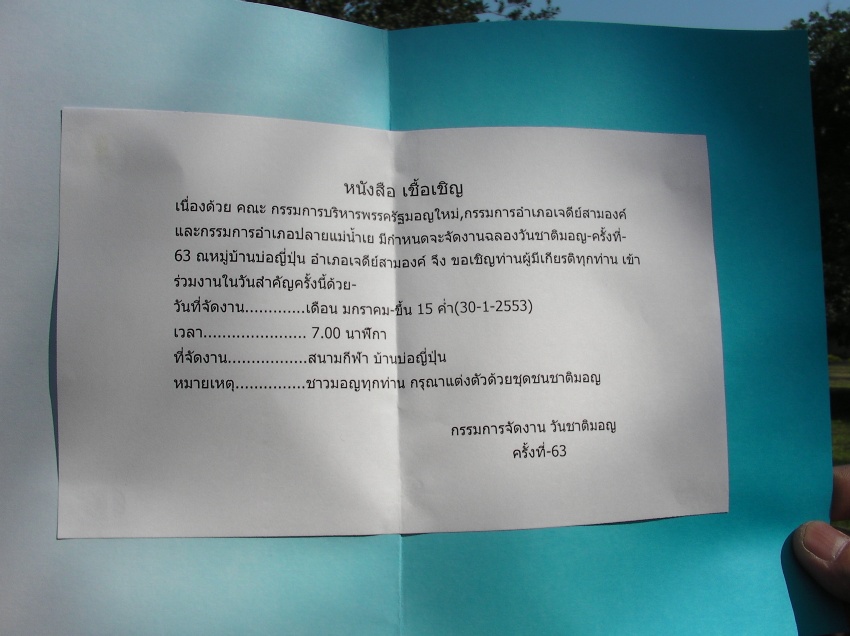 หนังสือ เชื้อเชิญ
เนื่องด้วย คณะ กรรมการบริหารพรรครัฐมอญใหม่,กรรมการอำเภอเจดีย์สามองค์
และกรรมการอำเภอปลายแม่น้ำเย มีกำหนดจะจัดงานฉลองวันชาติมอญ-ครั้งที่-
63 ณหมู่บ้านบ่อญี่ปุ่น อำเภอเจดีย์สามองค์ จึง ขอเชิญท่านผู้มีเกียรติทุกท่าน เข้า
ร่วมงานในวันสำคัญครั้งนี้ด้วย-
วันที่จัดงาน.............เดือน มกราคม-ขึ้น 15 ค่ำ(30-1-2553)
เวลา...................... 7.00 นาฬิกา
ที่จัดงาน.................สนามกีฬา บ้านบ่อญี่ปุ่น
หมายเหตุ...............ชาวมอญทุกท่าน กรุณาแต่งตัวด้วยชุดชนชาติมอญ
กรรมการจัดงาน วันชาติมอญ
ครั้งที่-63